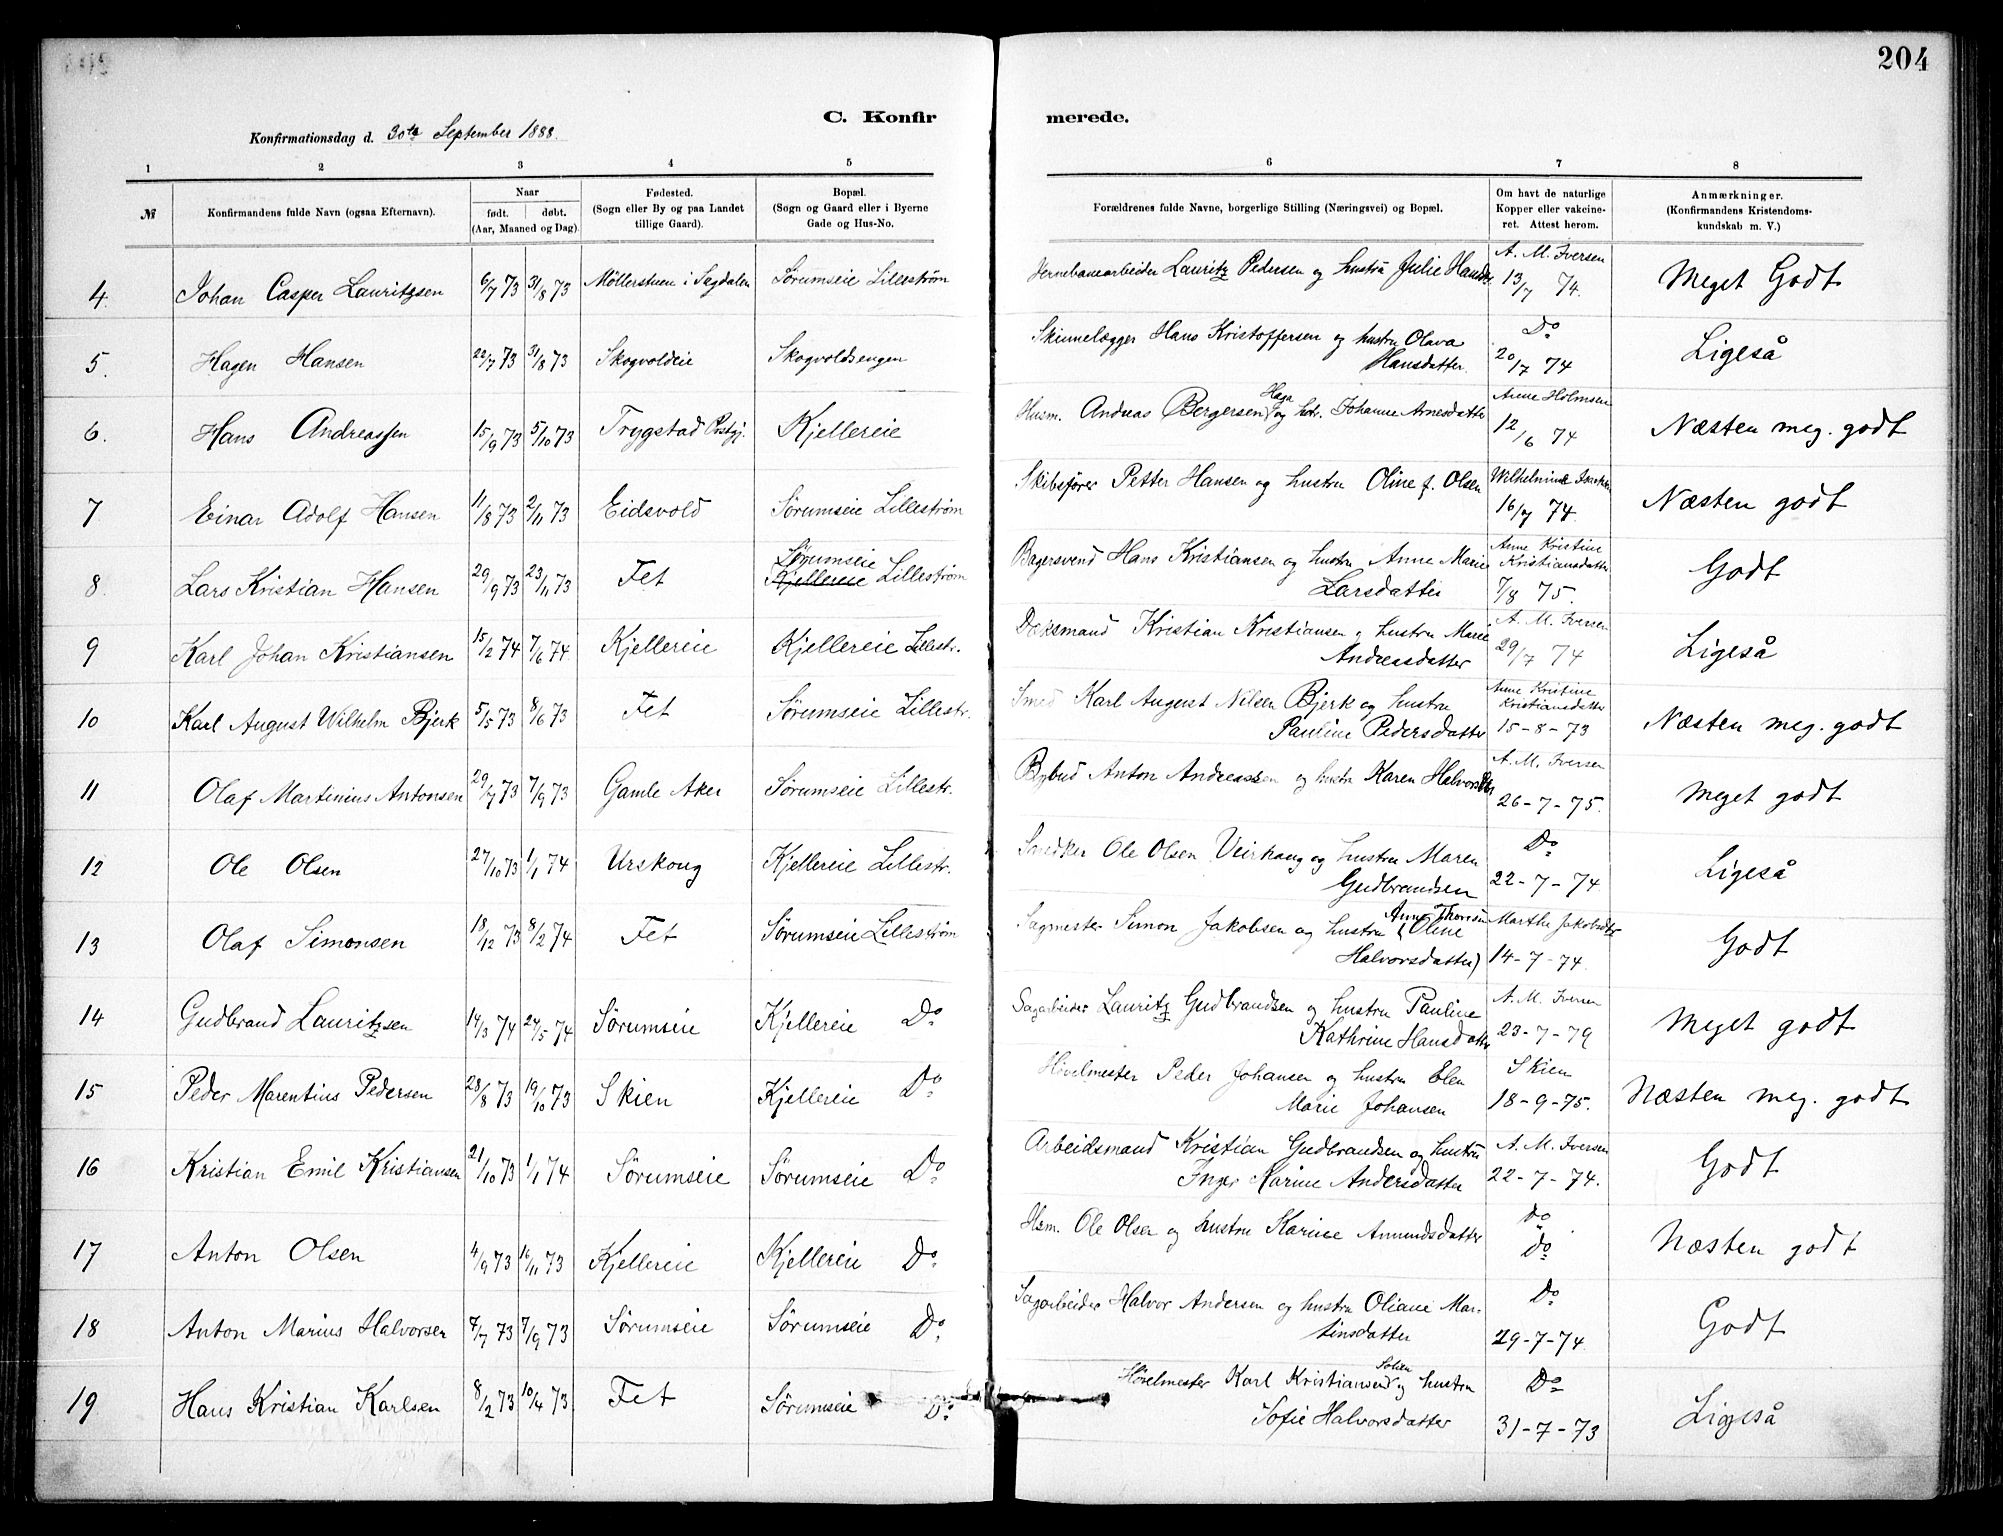 204
C. Konfirmerede.
Konfirmationsdag d. 30te September 1888.
1 2 3 4 5 6 7 8
№ Konfirmandens fulde Navn (ogsaa Efternavn). Naar født. døbt. (Aar, Maaned og Dag). Fødested. (Sogn eller By og paa Landet tillige Gaard). Bopæl. (Sogn og Gaard eller i Byerne Gade og Hus-No. Forældrenes fulde Navne, borgerlige Stilling (Næringsvei) og Bopæl. Om havt de naturlige Kopper eller vakcineret. Attest herom. Anmærkninger. (Konfirmandens Kristendomskundskab m. V.)
4. Johan Casper Lauritzsen 6/7 73 31/8 73 Möllerstuen i Sagdalen Sørumseie Lilleström Jernebanearbeider Lauritz Pedersen og hustru Julie A. M. Iversen 13/7 74. Meget Godt
5. Hagen Hansen 22/7 73 31/8 73 Skogvoldeie Skogvoldsengen Skinnelægger Hans Kristoffersen og hustru Olava Hansdatter. Do 20/7 74 Ligeså
6. Hans Andreassen 15/9 73 5/10 73 Trygstad Prstgj. Kjellereie Husm. Andreas Bergersen Haga og hst. Johanne Arnesdatter Anne Holmsen 12/6 74 Næsten meg. godt
7 Einar Adolf Hansen 11/8 73 2/11 73 Eidsvold Sørumseie Lilleström Skibsfører Petter Hansen og hustru Oline f. Olsen Wilhelmine 16/7 74. Næsten godt
8. Lars Kristian Hansen 29/9 73 23/11 73 Fet Sørumseie Kjellereie Lilleström Bagersvend Hans Kristiansen og hustru Anne Marie Larsdatter Anne Kristine Kristiansdatter 7/8 75. Godt
9 Karl Johan Kristiansen 15/2 74 7/6 74 Kjellereie Kjellereie Lillestr. Kristian Kristiansen og hustru Marie Andreasdatter A. M. Iversen 29/7 74 Ligeså
10 Karl August Wilhelm Bjerk 5/5 73 8/6 73 Fet Sørumseie Lillestr. Smed Karl August Nilsen Bjerk og hustru Pauline Pedersdatter Anne Kristine Kristiansdatter 15-8-73 Næsten meg. godt
11 Olaf Martinius Antonsen 29/7 73 7/9 73 Gamle Aker Sørumseie Lillestr. Bybud Anton Andreassen og hustru Karen Halvorsdtr A. M. Iversen 26-7-75. Meget godt
12 Ole Olsen 27/10 73 1/1 74 Urskoug Kjellereie Lillestr. Snedker Ole Olsen og hustru Maren Gudbrandsen Do 22-7-74 Ligeså
13 Olaf Simonsen 18/12 73 8/2 74 Fet Sørumseie Lilleström Sagmester Simon Jakobsen og hustru Anne Thorine (Oline Halvorsdatter) Marthe Jakobsdtr 14-7-74. Godt
14 Gudbrand Lauritzsen 14/3 74 24/5 74 Sørumseie Kjellereie Do Sagarbeider Lauritz Gudbrandsen og hustru Pauline Kathrine Hansdatter A. M. Iversen 23-7-79 Meget godt
15 Peder Marentius Pedersen 28/8 73 19/10 73 Skien Kjellereie Do Hövelmester Peder Johansen og hustru Elen Marie Johansen Skien 18-9-75. Næsten meg. godt
16 Kristian Emil Kristiansen 21/10 73 1/1 74 Sørumseie Sørumseie Do Arbeidsmand Kristian Gudbrandsen og hustru Inger Karine Andersdatter A. M. Iversen 22-7-74. Godt
17 Anton Olsen 4/9 73 16/11 73 Kjellereie Kjellereie Do Hsm. Ole Olsen og hustru Karine Amundsdatter do do Næsten godt
18 Anton Marius Halvorsen 7/7 73 7/9 73 Sørumseie Sørumseie Do Sagarbeider Halvor Andersen og hustru Oliane Martinsdatter Do 29-7-74. Godt
19 Hans Kristian Karlsen 8/2 73 10/4 73 Fet Sørumseie Do Hövelmester Karl Kristiansen og hustru Sofie Halvorsdatter Do 31-7-73 Ligeså